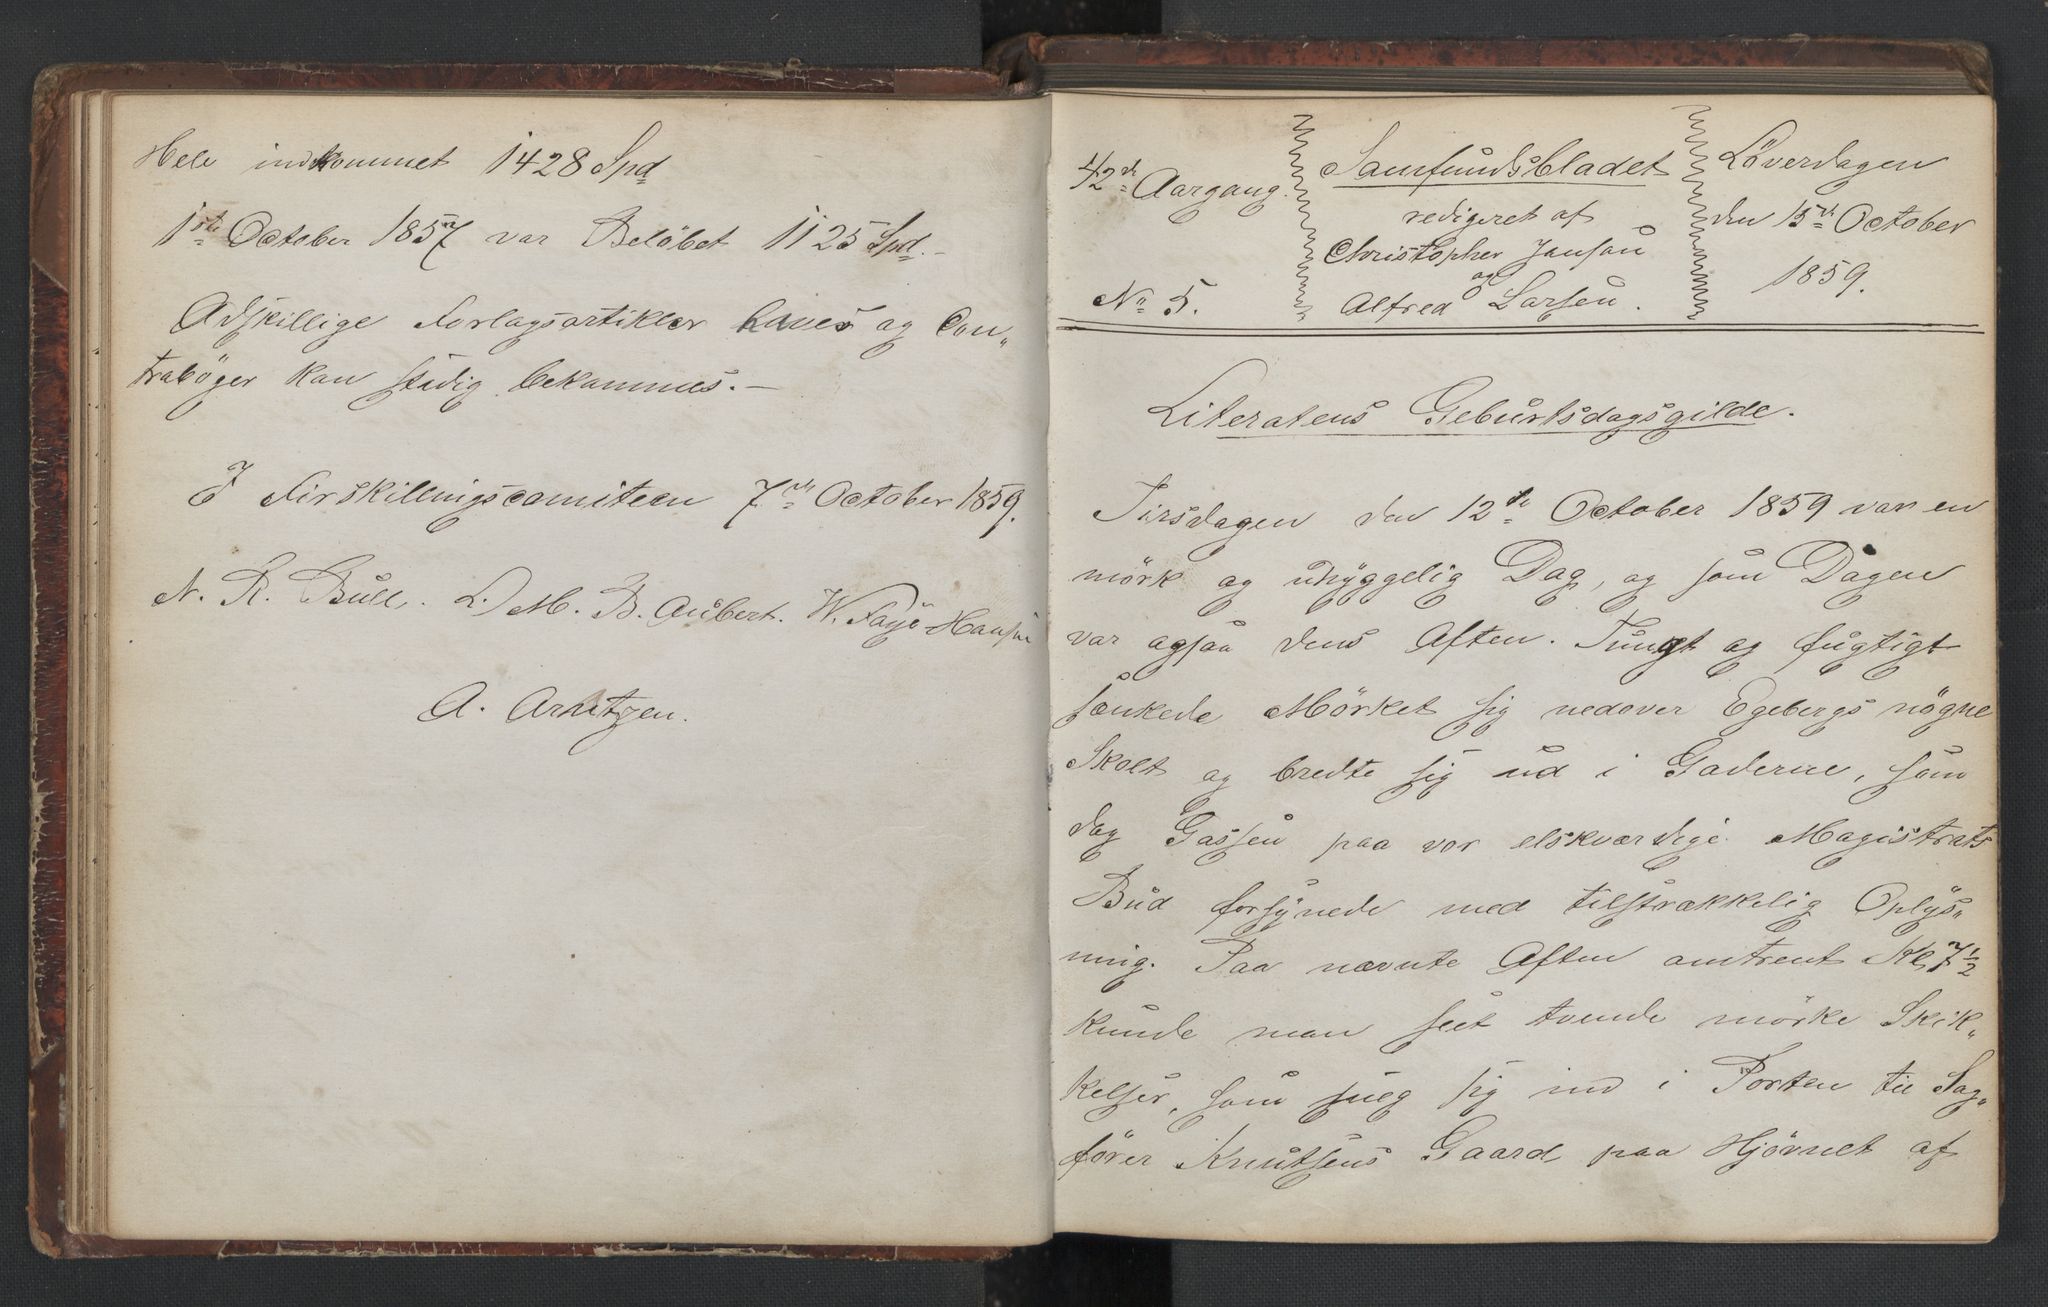 Hele indkommet 1428 Spd
1ste October 1857 var Belöbet 1125 Spd.–
Adskillige Forlagsartikler haves og Con„
traböger kan stadig bekommes.–
I Firskillingscomiteen 7de October 1859.
N. R. Bull. L. M. B. Aubert. W. Faye-Hansen
A. Arntzen.
42de Aargang.
No 5.
Samfundsbladet
redigeret af
Christopher Janson
og
Alfred Larsen.
Löverdagen
den 15de October
1859.
Literatens Geburtsdagsgilde.
Tirsdagen den 12te October 1859 var en
mörk og uhyggelig Dag, og som Dagen
var ogsaa dens Aften. Tungt og fugtigt
sænkede Mörket sig nedover Egebergs nögne
Skolt og bredte sig ud i Gaderne, som
dog Gassen paa vor elskværdige Magistrats
Bud forsynede med tilstrækkelig Oplys„
ning. Paa nævnte Aften omtrent Kl. 7½
kunde man seet tvende mörke Skik„
kelser, som sneg sig ind i Porten til Sag„
förer Knutsens Gaard paa Hjörnet af